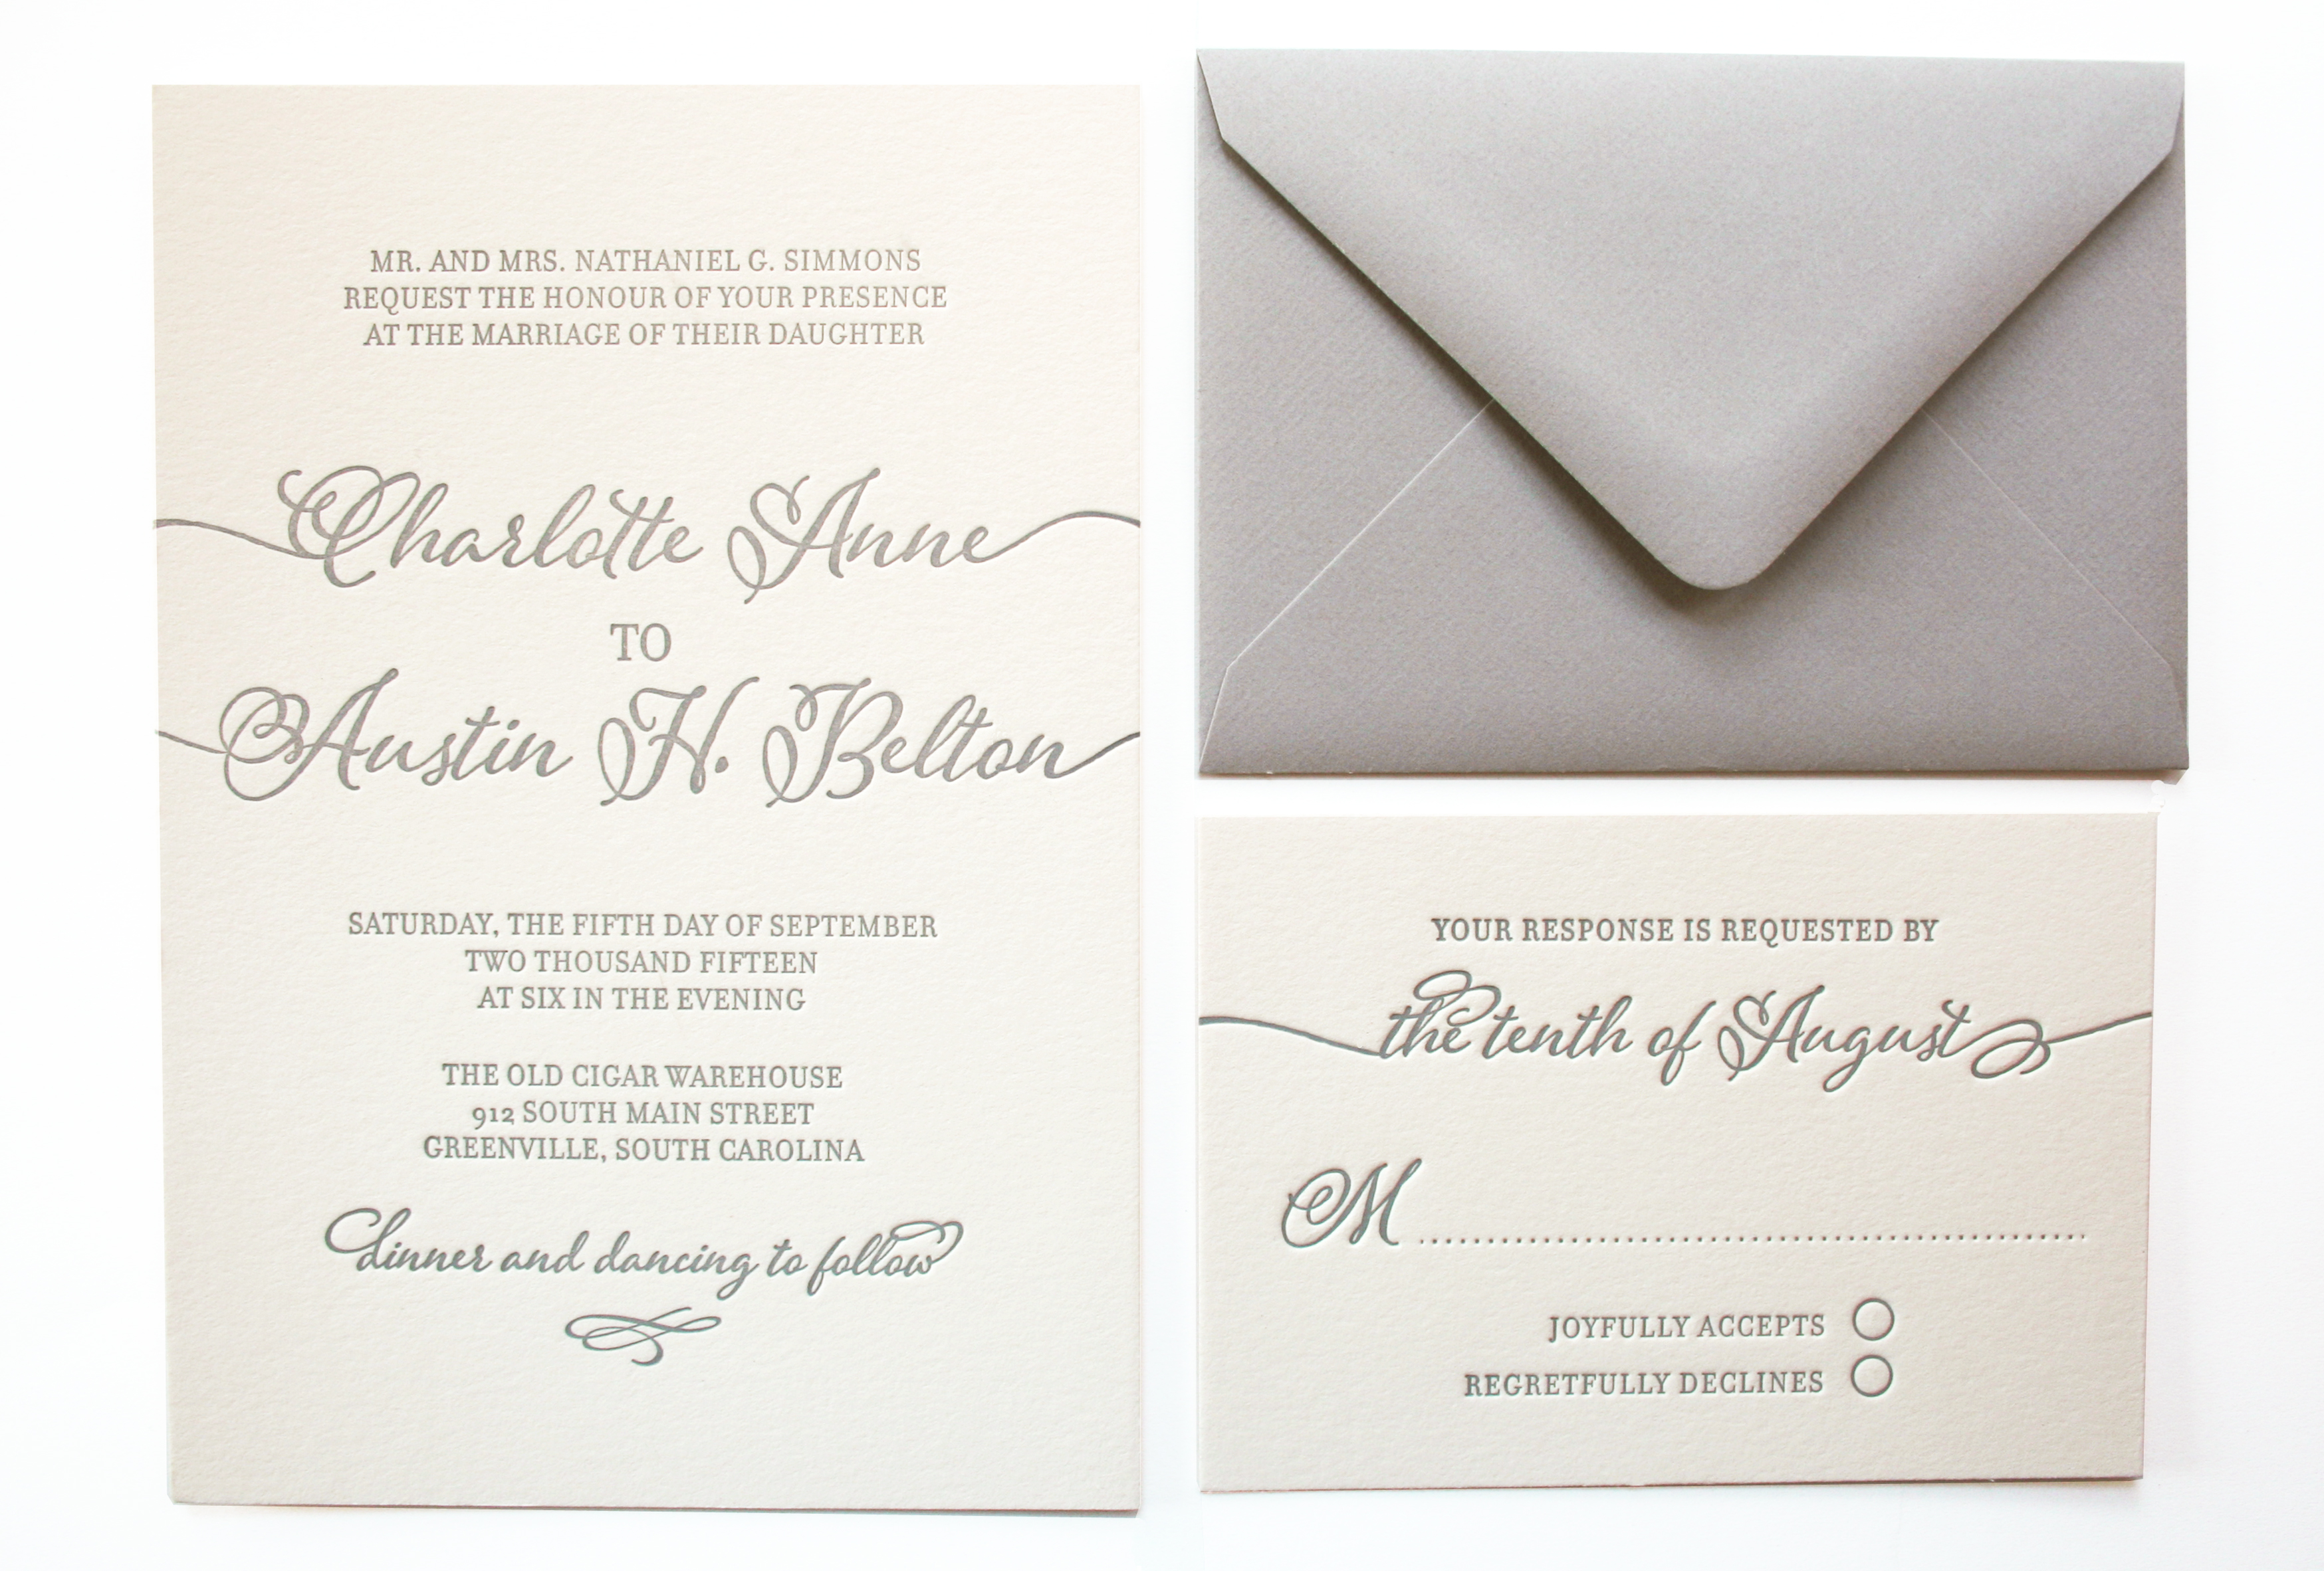 MR. AND MRS. NATHANIEL G. SIMMONS
REQUEST THE HONOUR OF YOUR PRESENCE
AT THE MARRIAGE OF THEIR DAUGHTER
Charlotte Anne
TO
Austin H. Belton
SATURDAY, THE FIFTH DAY OF SEPTEMBER
TWO THOUSAND FIFTEEN
AT SIX IN THE EVENING
THE OLD CIGAR WAREHOUSE
912 SOUTH MAIN STREET
GREENVILLE, SOUTH CAROLINA
dinner and dancing to follow
YOUR RESPONSE IS REQUESTED BY
the tenth of August
M
JOYFULLY ACCEPTS
REGRETFULLY DECLINES